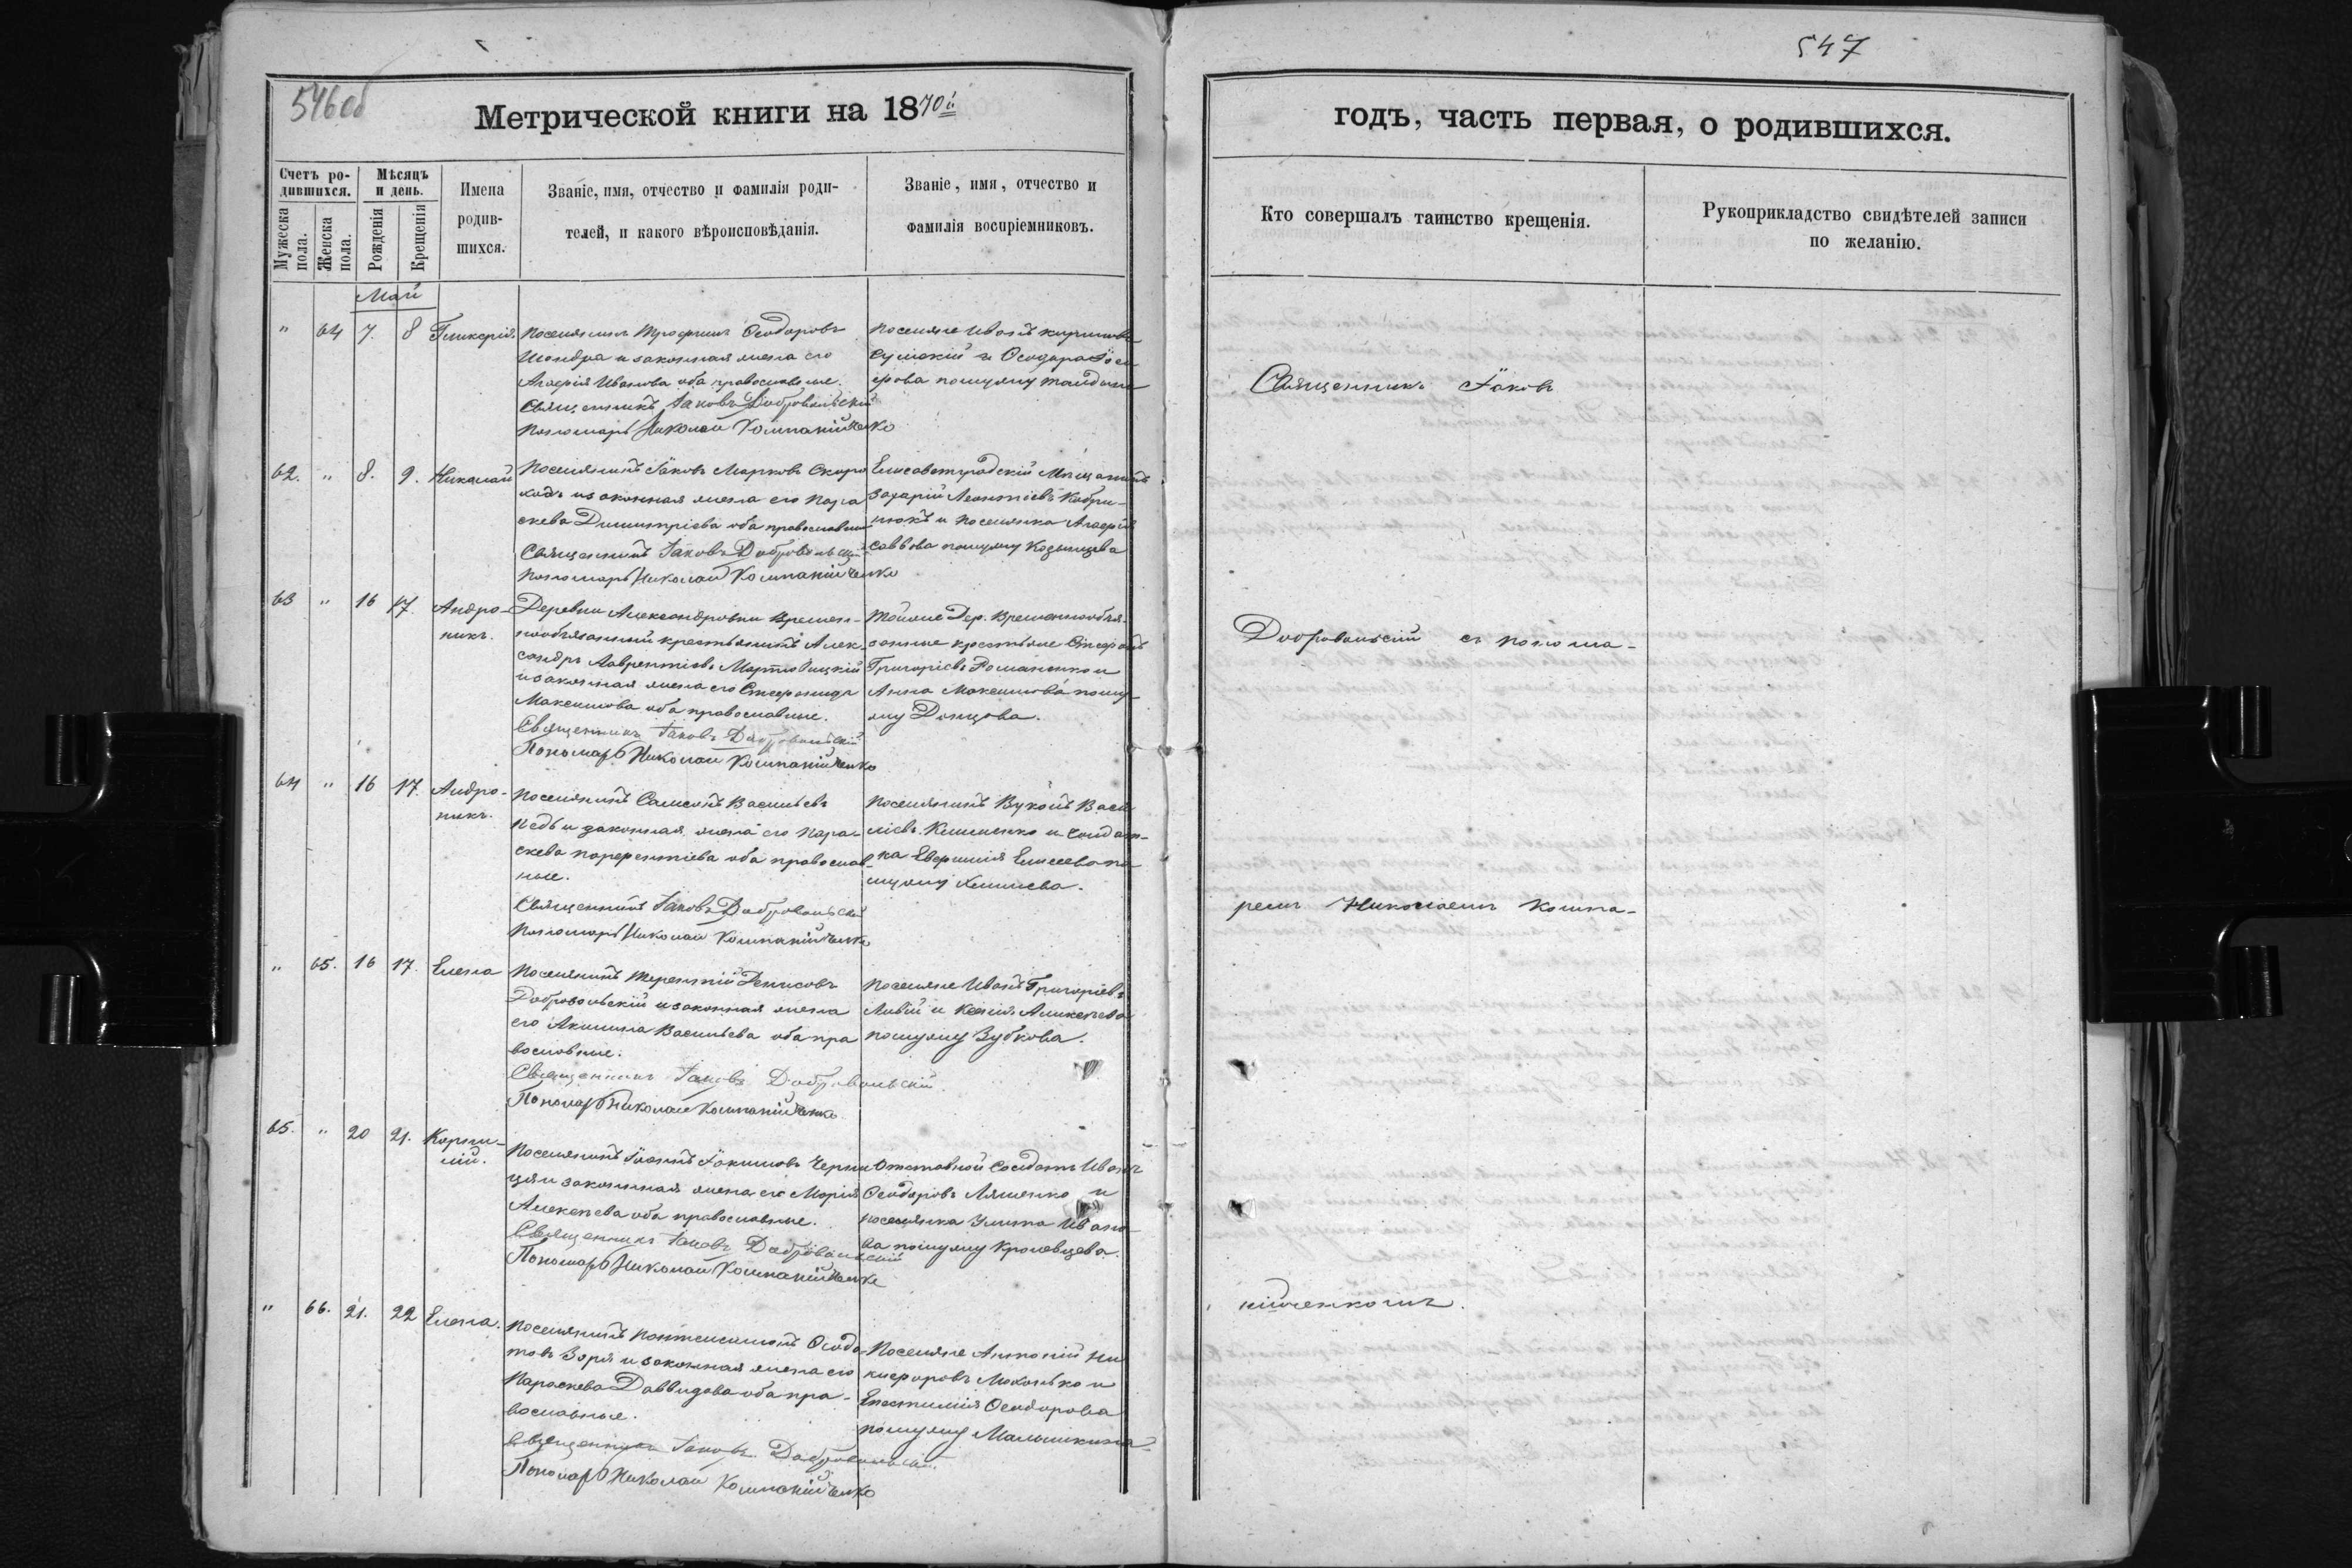 546об
Метрической книги на 1870й
Счетъ ро-
дившихся.
Мужеска пола.
Женска пола.
Мѣсяцъ
и день.
Рожденія
Крещенія
Имена
родив-
шихся.
Званіе, имя, отчество и фамилія роди-
телей, и какого вѣроисповѣданія.
Званіе, имя, отчество и
фамилія воспріемниковъ.
Май
" 64 7. 8 Гликерія
Поселянинъ Трофимъ Ѳеодоровъ
и законная жена его
Агафія Иванова оба православные.
Священникъ Іаковъ Добровольскій
Пономарь Николай Компанійченко
Поселяне Иванъ
и Ѳеодора
по мужу
62. " 8. 9. Николай
Поселянинъ Іаковъ Марковъ Скоро
ходъ и законная жена его Пара
скева Димитріева оба православные
Священникъ Іаковъ Добровольскій
Пономарь Николай Компанійченко
Елисаветградскій Мѣщанинъ
Захарій Леонтіевъ Кобри-
нюкъ и поселянка Агафія
Саввова по мужу
63 " 16 17. Андро-
никъ.
Деревни Александровки времен-
нообязанный крестьянинъ Алек-
сандръ Лаврентіевъ
и законная жена его Стефанида
Максимова оба православные.
Священникъ Іаковъ Добровольскій
Пономарь Николай Компанійченко
Тойже Дер. Временнообя-
занные крестьяне Стефанъ
Григоріевъ Романенко и
Анна Максимова по му-
жу Донцова.
64 " 16 17. Андро-
никъ.
Поселянинъ Самсонъ Васильевъ
и законная жена его Пара-
скева Порфентіева оба православ-
ные.
Священникъ Іаковъ Добровольскій
Пономарь Николай Компанійченко
Поселянинъ Вуколъ Васи
ліевъ и солдат-
ка Евфимія Елисеева по
мужу
" 65. 16 17. Елена
Поселянинъ Терентій Денисовъ
Добровольскій и законная жена
его Акилина Васильева оба пра
вославные.
Священникъ Іаковъ Добровольскій
Пономарь Николай Компанійченко
Поселяне Иванъ Григоріевъ
и Ксенія Алексѣева
по мужу Зубкова.
65. " 20 21. Корни-
лій.
Поселянинъ Іоаннъ Іакимовъ
и законная жена его Марія
Алексѣева оба православные.
Священникъ Іаковъ Добровольскій
Пономарь Николай Компанійченко
Отставной Солдатъ Иванъ
Ѳеодоровъ Ляшенко и
поселянка Улита Ивано-
ва по мужу Кролевцева.
" 66. 21. 22 Елена.
Поселянинъ Пантелеимонъ Ѳеодо
товъ Зоря и законная жена его
Параскева Даввидова оба пра-
вославные.
Священникъ Іаковъ Добровольскій
Пономарь Николай Компанійченко
Поселяне Антоній Ни
кифоровъ и
Епистимія Ѳеодорова
по мужу
547
годъ, часть первая, о родившихся.
Кто совершалъ таинство крещенія.
Рукоприкладство свидѣтелей записи
по желанію.
Священникъ Іаковъ
Добровольскій съ понома-
ремъ Николаемъ Компа-
нійченкомъ.